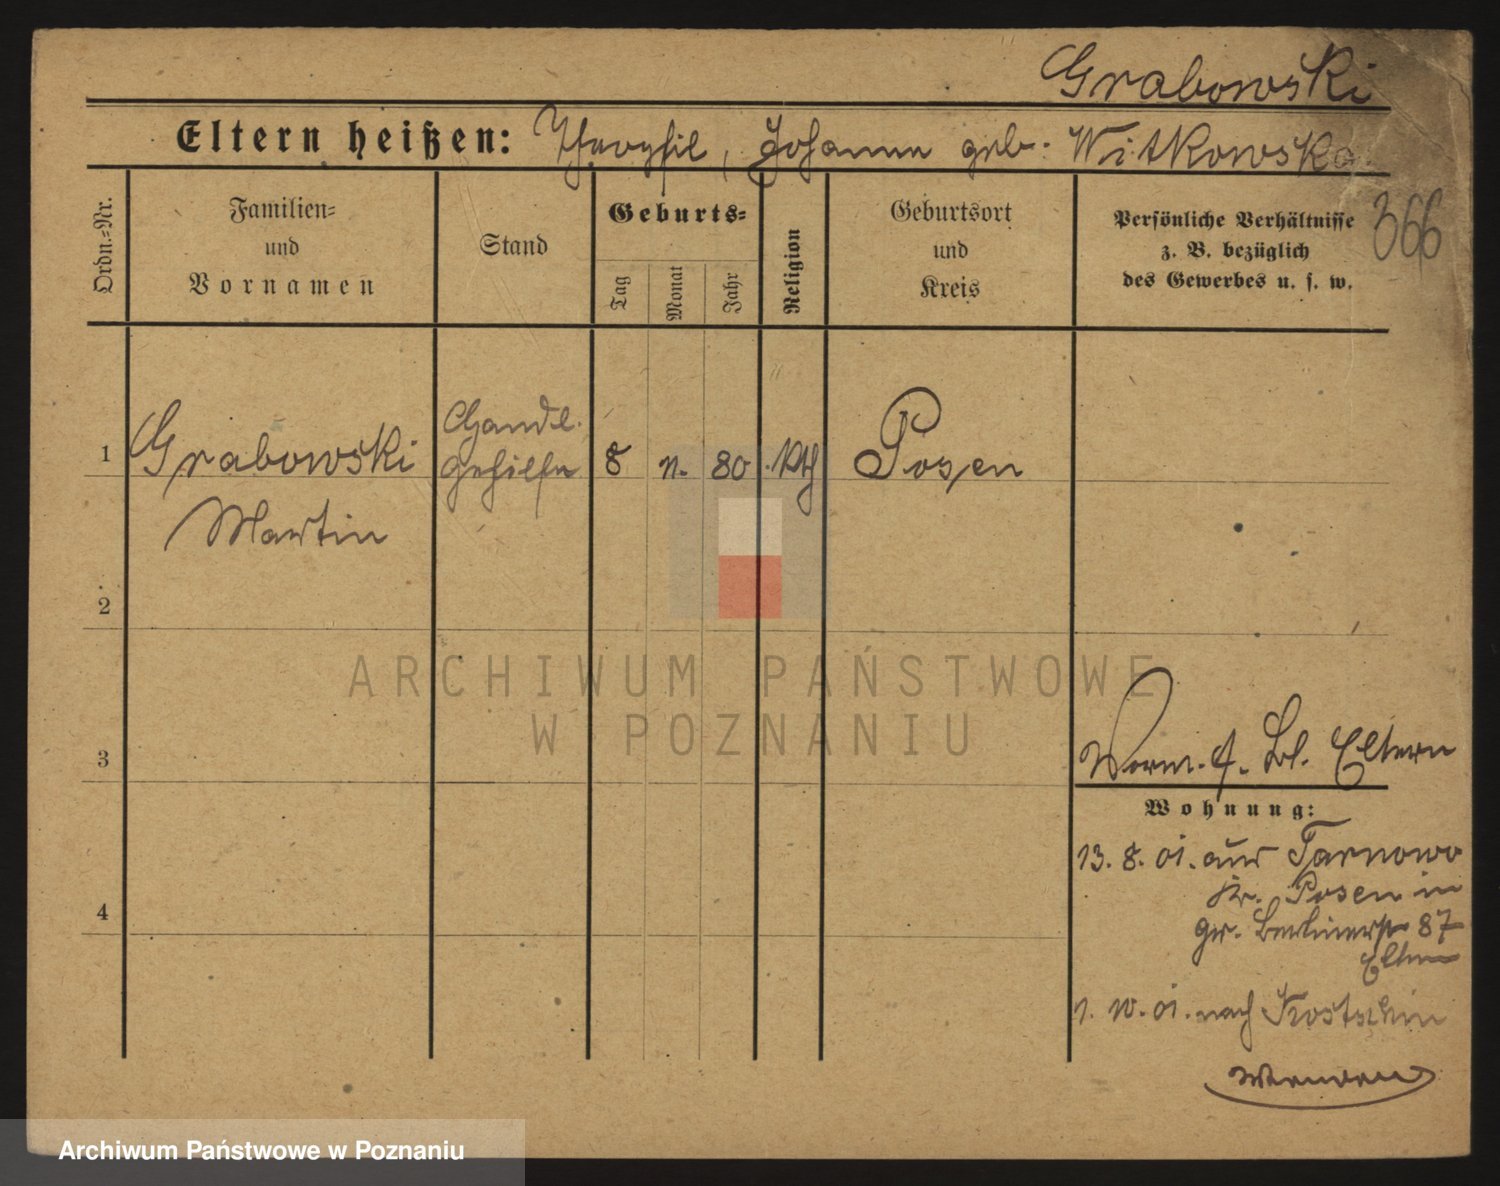 Grabowski
Eltern heißen: Theophil, Johanna geb. Witkowska
366
Ordn.=Nr.
Familien=
und
Vornamen
Stand
Geburts=
Tag
Monat
Jahr
Religion
Geburtsort
und
Kreis
Persönliche Verhältnisse
z. B. bezüglich
des Gewerbes u. s. w.
1
Grabowski
Martin
Handl.
gehilfe
8
11.
80
kth
Posen
2
3
4
ARCHIWUM PAŃSTWOWE
W POZNANIU
Vorm. f. Bl. Eltern
Wohnung:
13. 8. 01. aus Tarnowo
Kr. Posen in
gr. Berlinerstr 87
Eltern
1. 10. 01. nach Kostschin
Archiwum Państwowe w Poznaniu